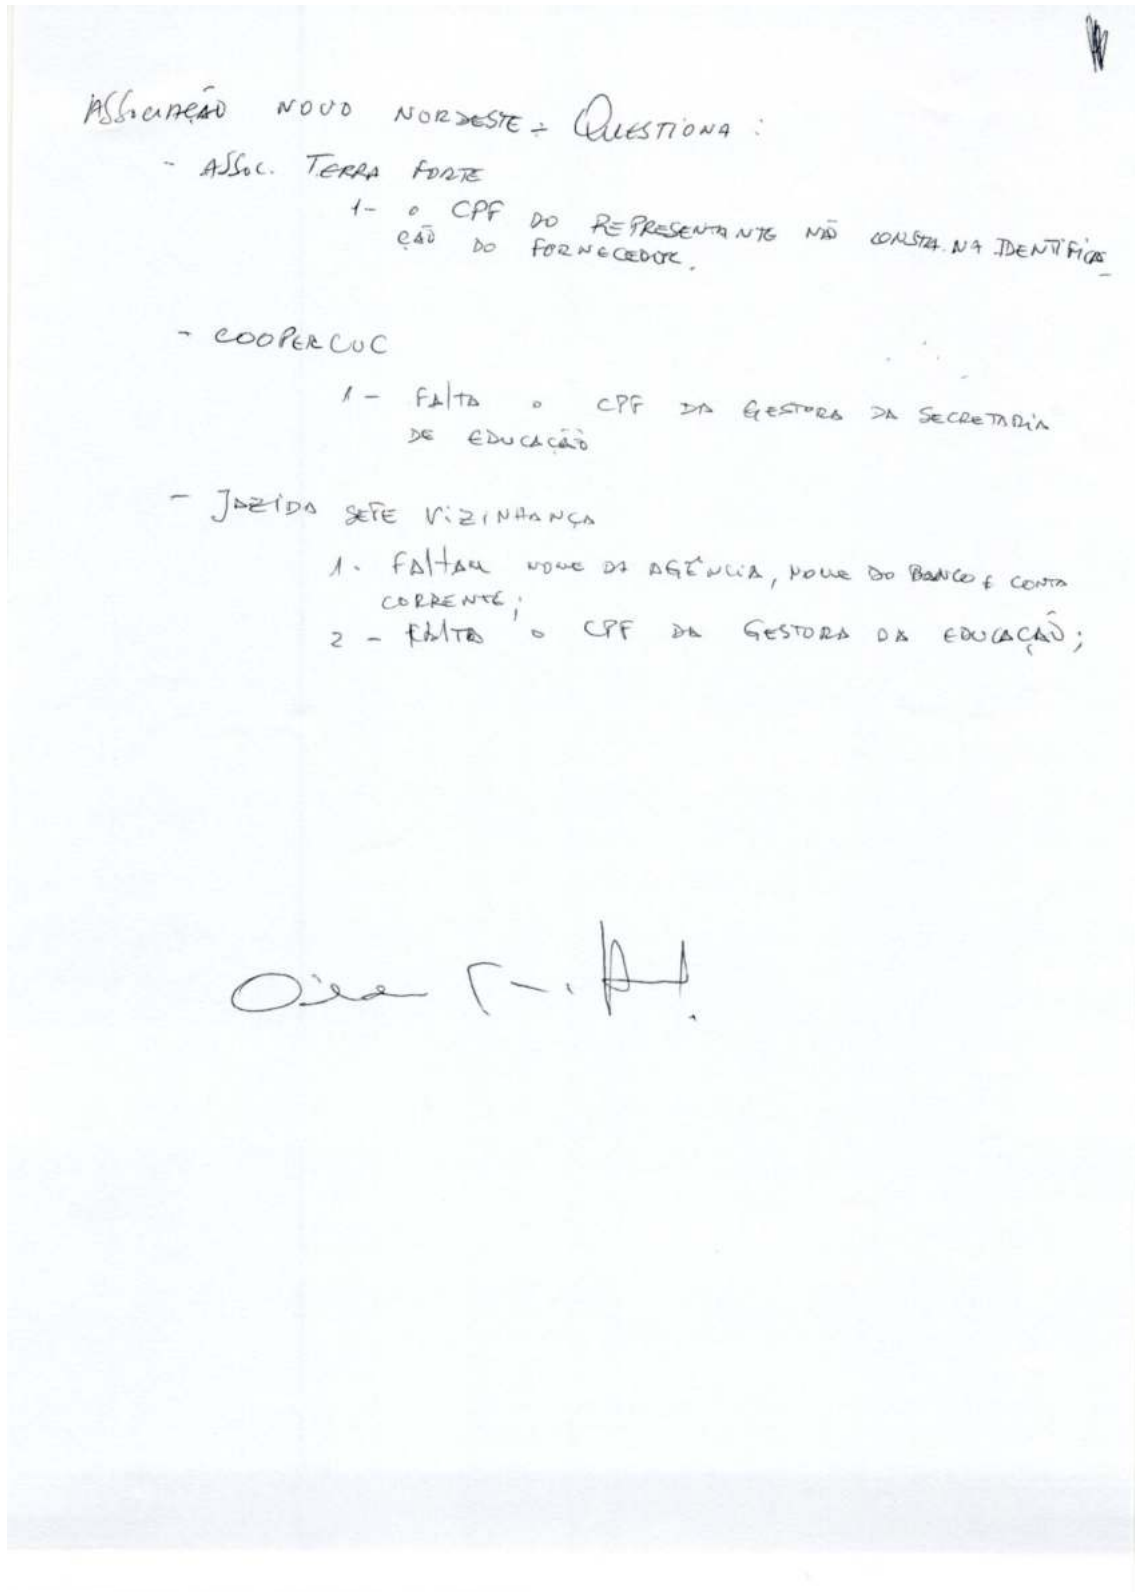 ASSOCIAÇÃO NOVO NORDESTE - QUESTIONA:
- ASSOC. TERRA FORTE
1- O CPF DO REPRESENTANTE NÃO CONSTA NA IDENTIFICA-
ÇÃO DO FORNECEDOR.
- COOPERCUC
1 - FALTA O CPF DA GESTORA DA SECRETARIA
DE EDUCAÇÃO
- JAZIDA SETE VIZINHANÇA
1. FALTAM NOME DA AGÊNCIA, NOME DO BANCO E CONTA
CORRENTE;
2 - FALTA O CPF DA GESTORA DA EDUCAÇÃO;